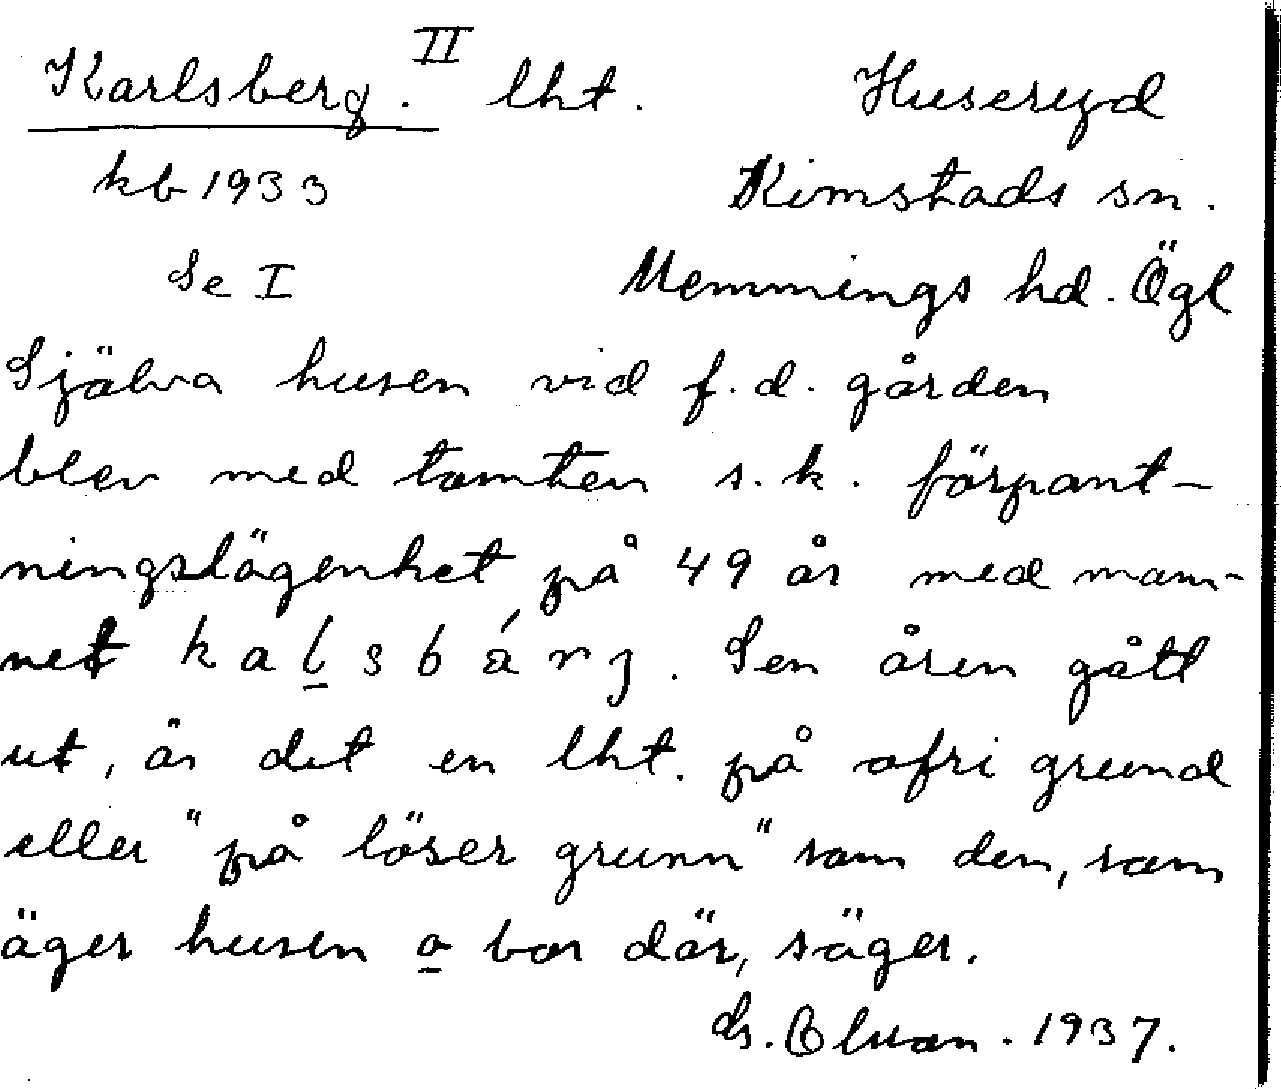 Karlsberg. II lht. Huseryd
kb 1933 Kimstads sn.
Se I Memmings hd. Ögl
Själva husen vid f.d. gården
blev med tomten s.k. förpant-
ningslägenhet på 49 år med nam-
net kalsbárj. Sen åren gått
ut, är det en lht. på ofri grund
eller "på löser grunn" som den, som
äger husen o bor där, säger.
1937.